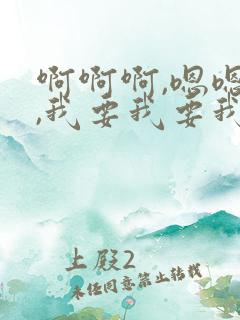 啊啊啊,嗯嗯
,我要我要我
上殿2
未经同意禁止转载